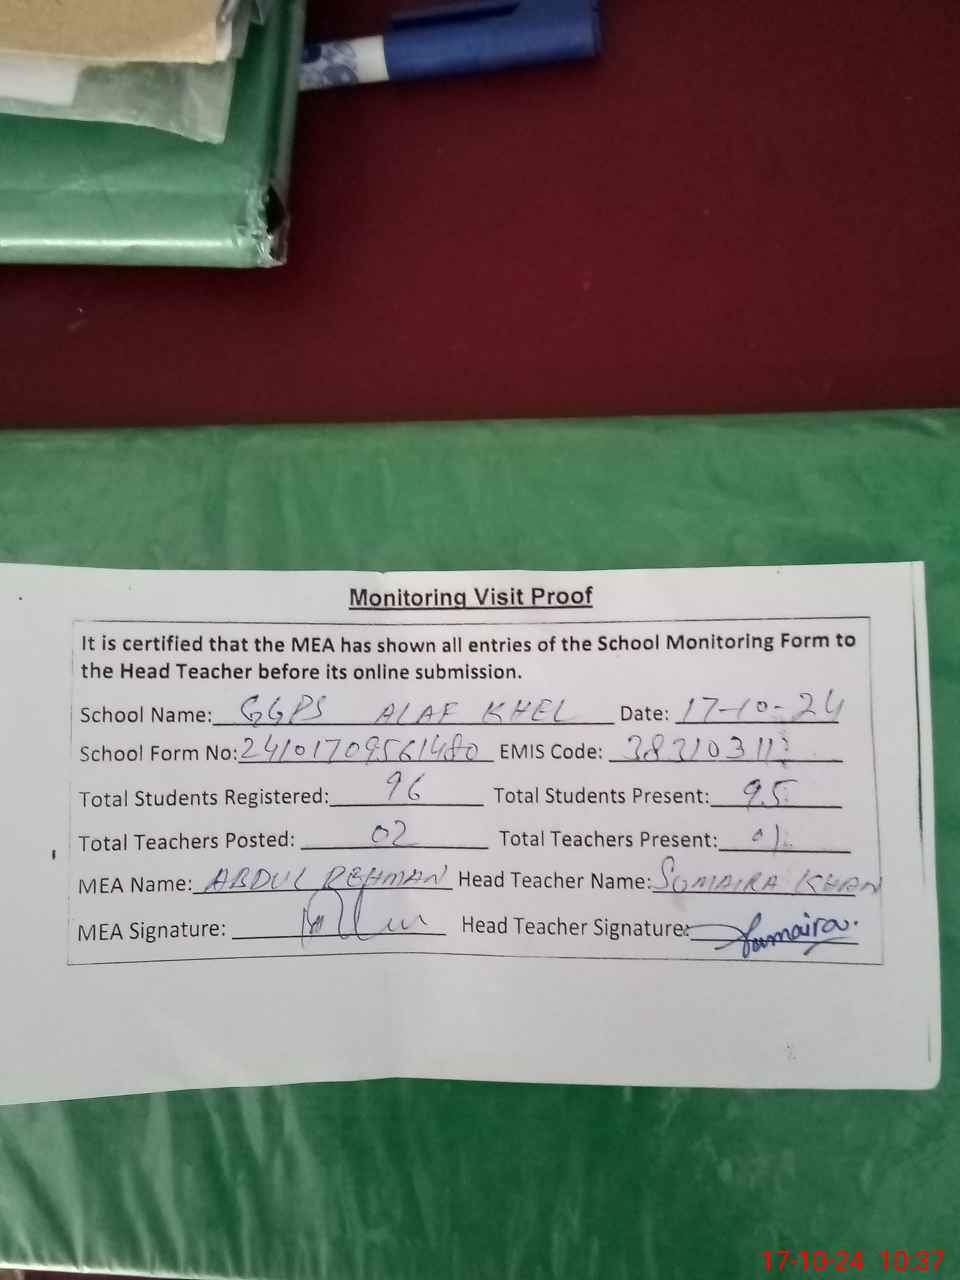 Monitoring Visit Proof
It is certified that the MEA has shown all entries of the School Monitoring Form to
the Head Teacher before its online submission.
School Name: GGPS ALAF KHEL Date: 17-10-24
School Form No: 24101709561480 EMIS Code:
Total Students Registered: 96 Total Students Present: 95
Total Teachers Posted: 02 Total Teachers Present: 01
MEA Name: ABDUL REHMAN Head Teacher Name: SUMAIRA KHAN
MEA Signature: Head Teacher Signature: Sumaira.
17-10-24 10:37